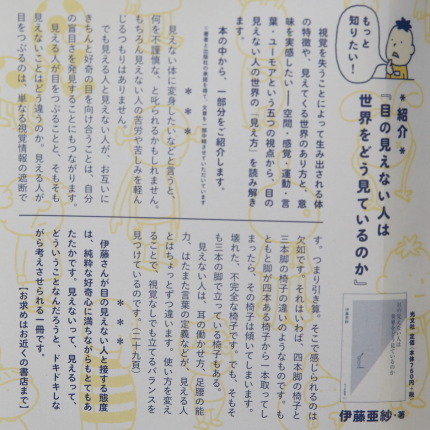 もっと
知りたい！
＊紹介＊
『目の見えない人は
世界をどう見ているのか』
光文社 定価（本体760円＋税）
伊藤亜紗・著
視覚を失うことによって生み出される体
の特徴や、見えてくる世界のあり方と、意
味を実感したい――空間・感覚・運動・言
葉・ユーモアという五つの視点から、目の
見えない人の世界の「見え方」を読み解き
ます。
本の中から、一部分をご紹介します。
＊＊＊
見えない体に変身したいなどと言うと、
何を不謹慎な、と叱られるかもしれません。
もちろん見えない人の苦労や苦しみを軽ん
じるつもりはありません。
でも見える人と見えない人が、お互いに
きちんと好奇の目を向け合うことは、自分
の盲目さを発見することにもつながります。
見える人が目をつぶることと、そもそも
見えないことはどう違うのか。見える人が
目をつぶるのは、単なる視覚情報の遮断で
す。つまり引き算。そこで感じられるのは
欠如です。それはいわば、四本脚の椅子と
三本脚の椅子の違いのようなものです。も
ともと脚が四本ある椅子から一本取ってし
まったら、その椅子は傾いてしまいます。
壊れた、不完全な椅子です。でも、そもそ
も三本の脚で立っている椅子もある。
見えない人は、耳の働かせ方、足腰の能
力、はたまた言葉の定義などが、見える人
とはちょっとずつ違います。使い方を変え
ることで、視覚なしでも立てるバランスを
見つけているのです。（二十九頁）
＊＊＊
伊藤さんが目の見えない人と接する態度
は、純粋な好奇心に満ちながらもとてもあ
たたかです。見えないって、見えるって、
どういうことなんだろうと、ドキドキしな
がら考えさせられる一冊です。
【お求めはお近くの書店まで】